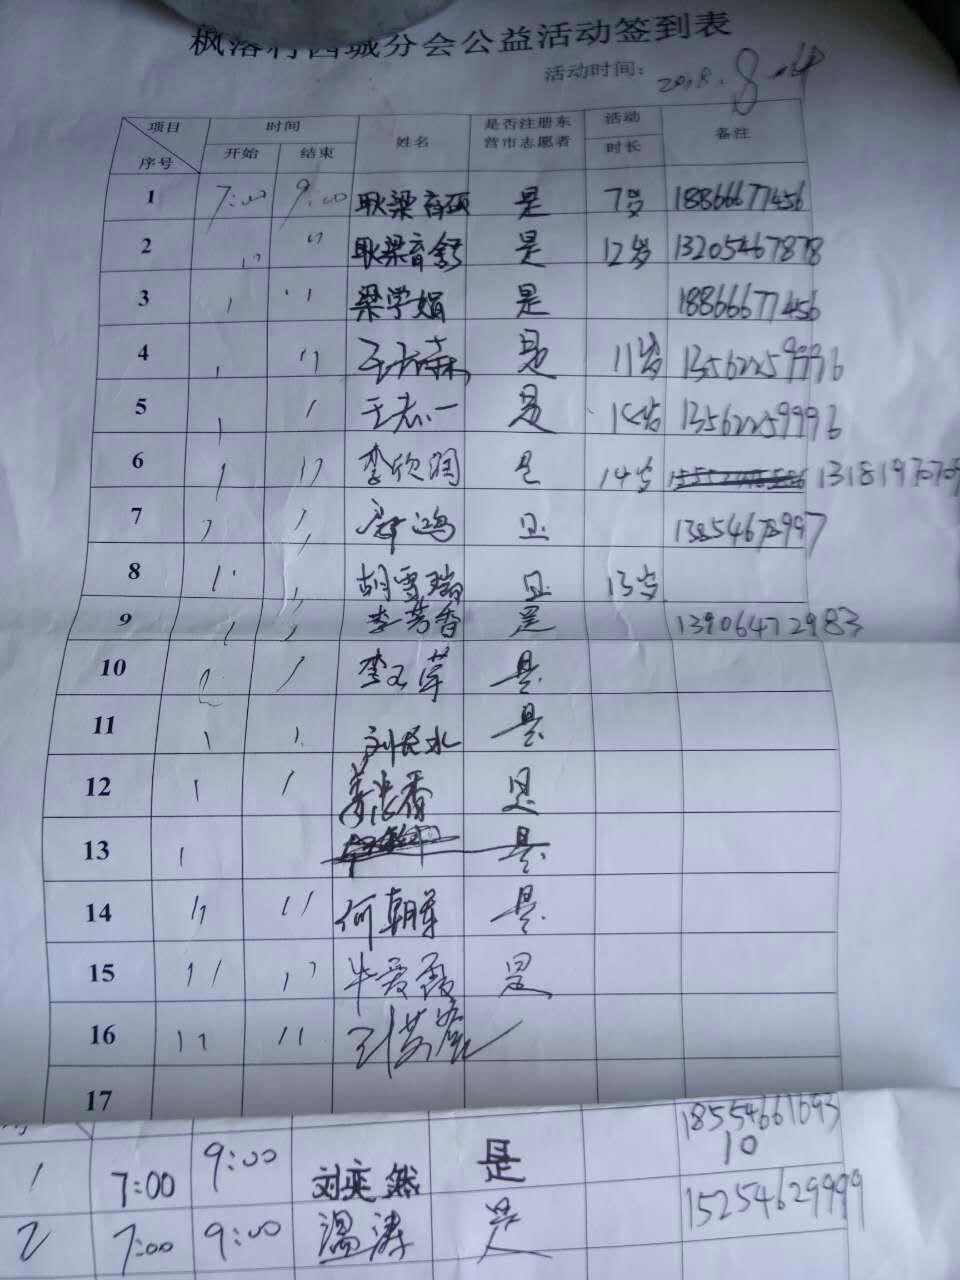 枫落村西城分会公益活动签到表
活动时间: 2018.8.4
项目 时间 姓名 是否注册东营市志愿者 活动时长 备注
序号 开始 结束
1 7:00 9:00 耿梁育硕 是 7岁 18866677456
2 〃 〃 耿梁育舒 是 12岁 13205467878
3 梁学娟 是 18866677456
4 是 11岁 13562259996
5 王志一 是 13562259996
6 李欣润 是 14岁 131819
7 鸿 是
8 胡雪瑞 是 13岁
9 李芳香 是 13906472983
10 李玉萍 是
11 刘 水 是
12 香 是
13 是
14 何朝军 是
15 牛爱霞 是
16
17
18554661693
1 7:00 9:00 刘奕然 是 10
2 7:00 9:00 温涛 是 15254629999